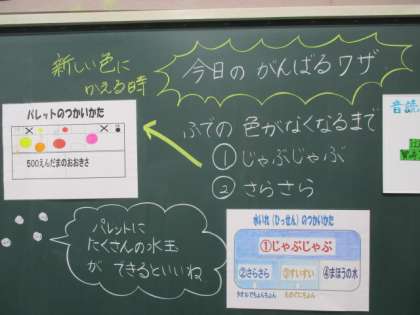 新しい色に
かえる時
今日の がんばるワザ
パレットのつかいかた
500えんだまのおおきさ
ふでの 色がなくなるまで
①じゃぶじゃぶ
②さらさら
パレットに
たくさんの水玉
が できるといいね
水いれ（ひっせん）のつかいかた
①じゃぶじゃぶ
②さらさら ③すいすい ④まほうの水
音読